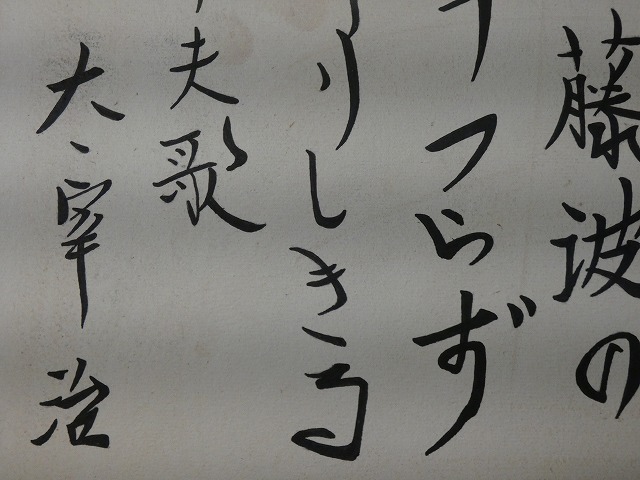 藤波の
つらず
りしきる
夫歌
太宰治